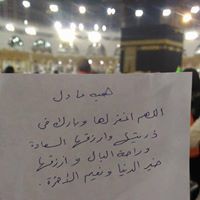 هبه عادل
اللهم اغفر لها وبارك في
ذريتها وارزقها السعادة
وراحة البال وارزقها
خير الدنيا ونعيم الآخرة.